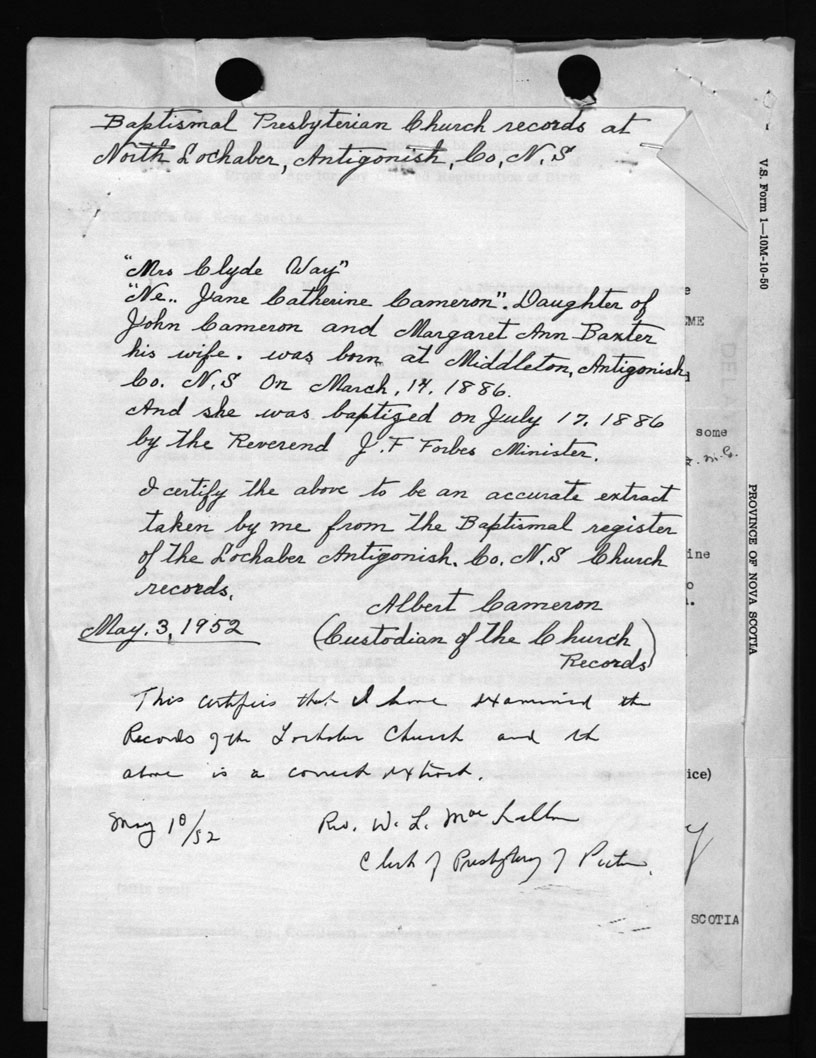 Baptismal Presbyterian Church records at
North Lochaber, Antigonish, Co, N.S
"Mrs Clyde Way"
"Ne.. Jane Catherine Cameron". Daughter of
John Cameron and Margaret Ann Baxter
his wife. was born at Middleton, Antigonish,
Co. N.S On March, 14, 1886.
And she was baptized on July 17. 1886
by the Reverend J.F Forbes Minister.
I certify the above to be an accurate extract
taken by me from the Baptismal register
of the Lochaber Antigonish. Co. N.S Church
records.
Albert Cameron
May. 3, 1952
(Custodian of the Church
Records)
This certifies that I have examined the
Records of the Lochaber Church and th
above is a correct extract.
May 10/52
Rev. W. L. Mac
Clerk of Presbytery of Pictou.
V.S. Form 1—10M-10-50
PROVINCE OF NOVA SCOTIA
DELA
ME
some
ine
ice)
SCOTIA